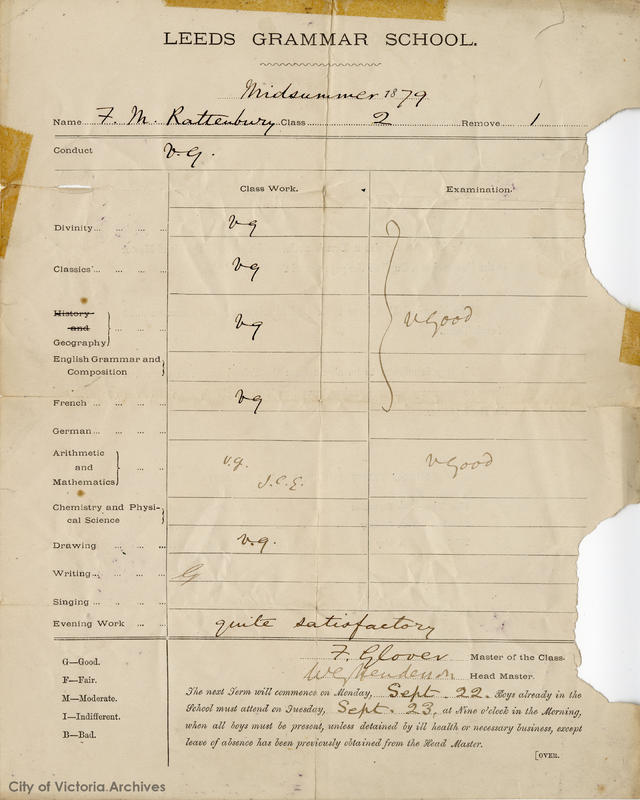 LEEDS GRAMMAR SCHOOL.
Midsummer 1879
Name F. M. Rattenbury Class 2 Remove 1
Conduct v.G.
Class Work. Examination.
Divinity vg
Classics vg
History
and
Geography vg v Good
English Grammar and
Composition
French vg
German
Arithmetic v.g. v Good
and
Mathematics J.C.E.
Chemistry and Physi-
cal Science
Drawing v.g.
Writing G
Singing
Evening Work quite satisfactory
F. Glover Master of the Class.
W G Henderson Head Master.
G—Good.
F—Fair.
M—Moderate.
I—Indifferent.
B—Bad.
The next Term will commence on Monday, Sept. 22. Boys already in the
School must attend on Tuesday, Sept. 23, at Nine o'clock in the Morning,
when all boys must be present, unless detained by ill health or necessary business, except
leave of absence has been previously obtained from the Head Master.
[OVER.
City of Victoria Archives